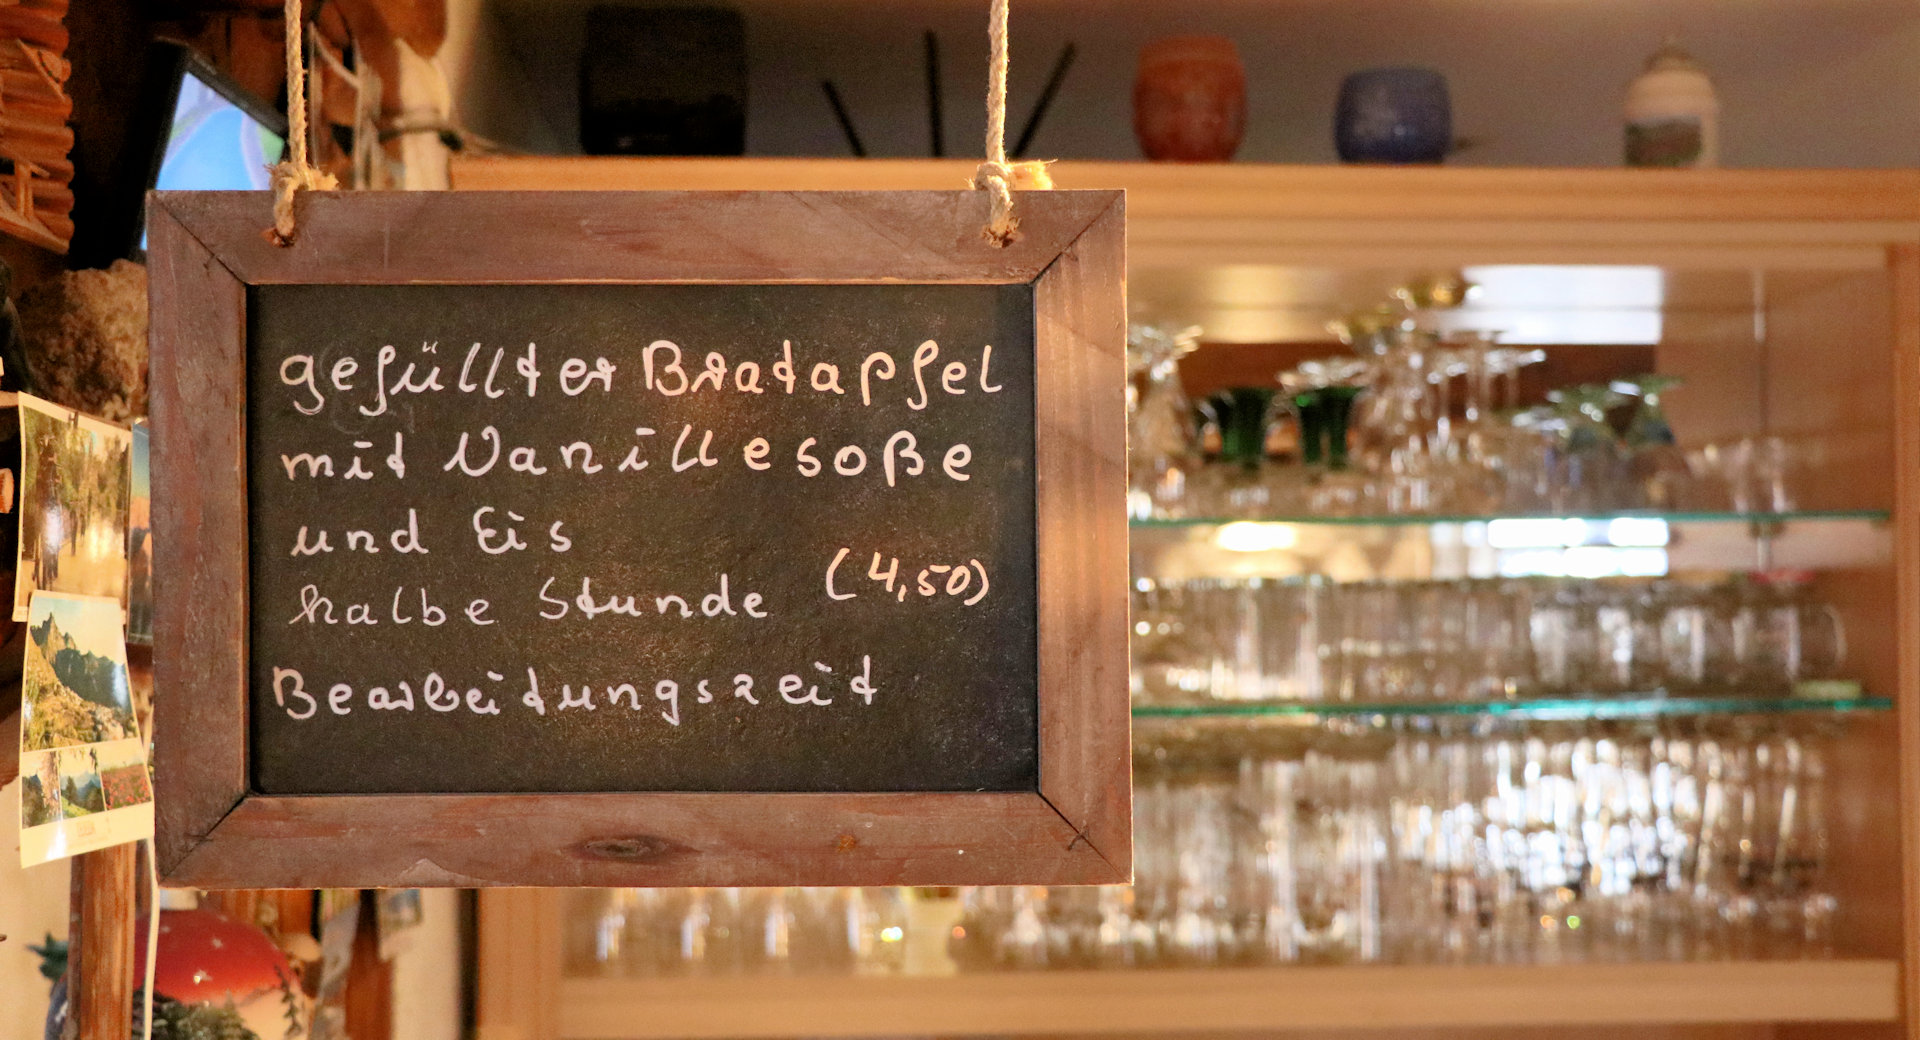 gefüllter Bratapfel
mit Vanillesoße
und Eis
halbe Stunde (4,50)
Bearbeitungszeit